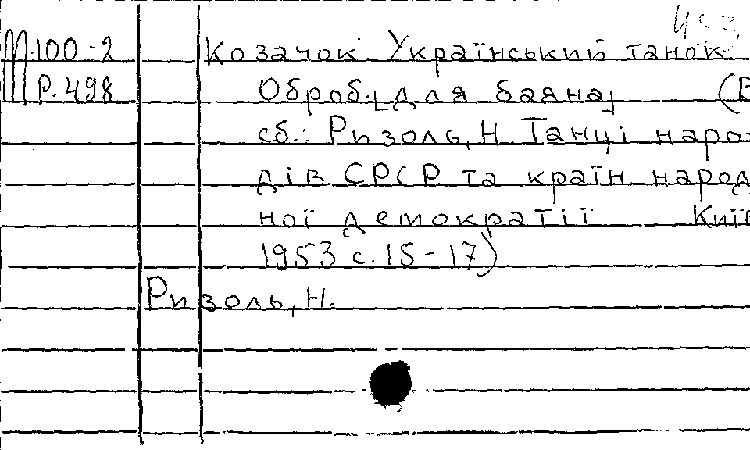 М100-2 Козачок Український танок.
Р.498 Оброб. [для баяна] (В
сб.: Ризоль, Н. Танці наро-
дів СРСР та країн народ
ної демократії Київ
1953 с. 15-17)
Ризоль, Н.